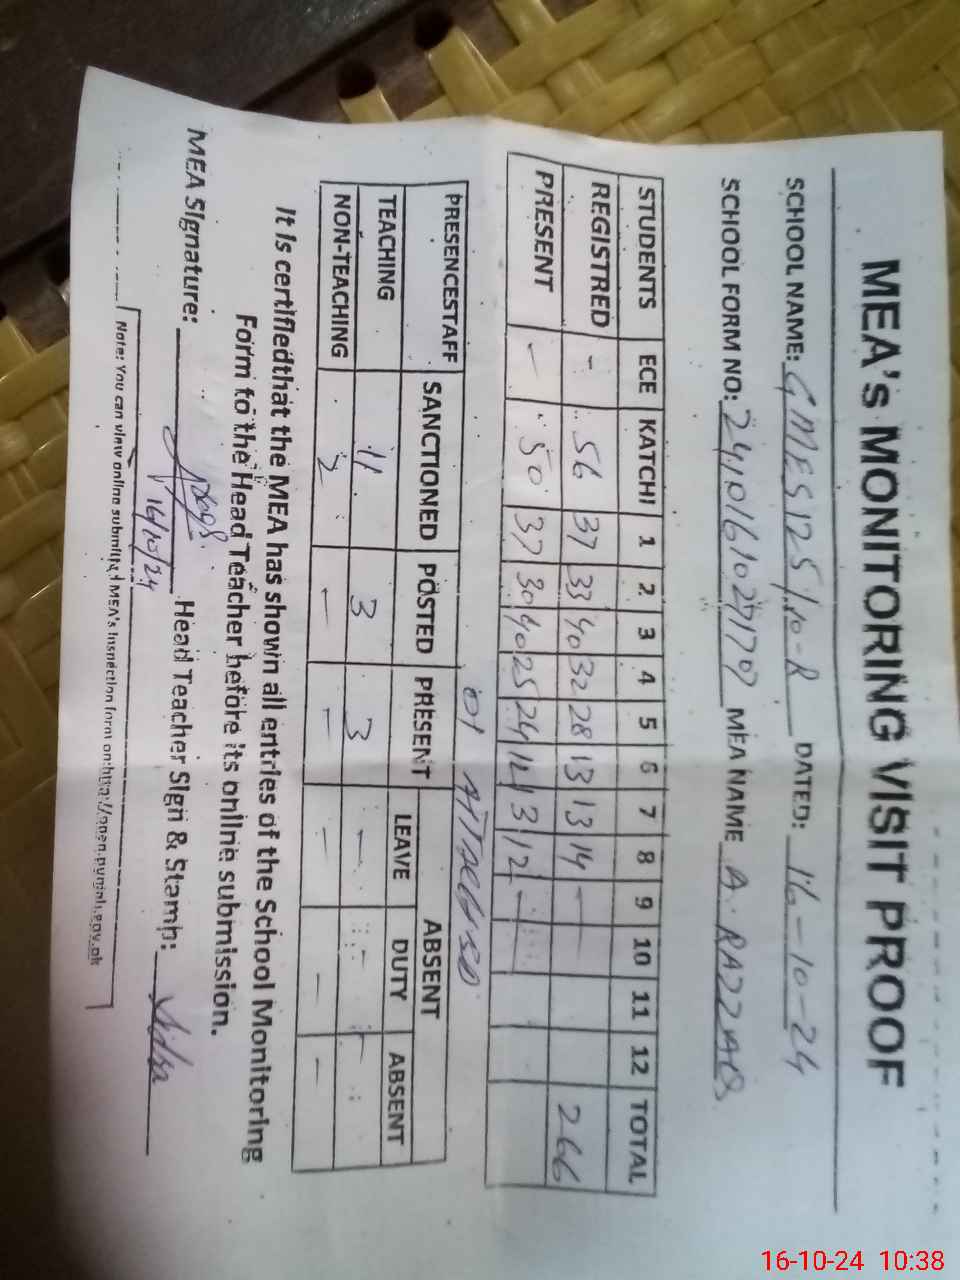 MEA's MONITORING VISIT PROOF
SCHOOL NAME: GMES 125/10-R DATED: 16-10-24
SCHOOL FORM NO: MEA NAME A. RAZZAQ
STUDENTS ECE KATCHI 1 2 3 4 5 6 7 8 9 10 11 12 TOTAL
REGISTRED - 56 37 33 40 32 28 13 13 14 - - 266
PRESENT - 50 37 30 40 25 24 12 13 12 - -
01 ATTACHED
PRESENCESTAFF SANCTIONED POSTED PRESENT ABSENT
LEAVE DUTY ABSENT
TEACHING 11 3 3 - - -
NON-TEACHING 2 - - - - -
It is certifiedthat the MEA has shown all entries of the School Monitoring
Form to the Head Teacher before its online submission.
MEA Signature: Head Teacher Sign & Stamp:
16/10/24
Note: You can view online submitted MEA's Inspection form on:http://open.punjab.gov.pk
16-10-24 10:38